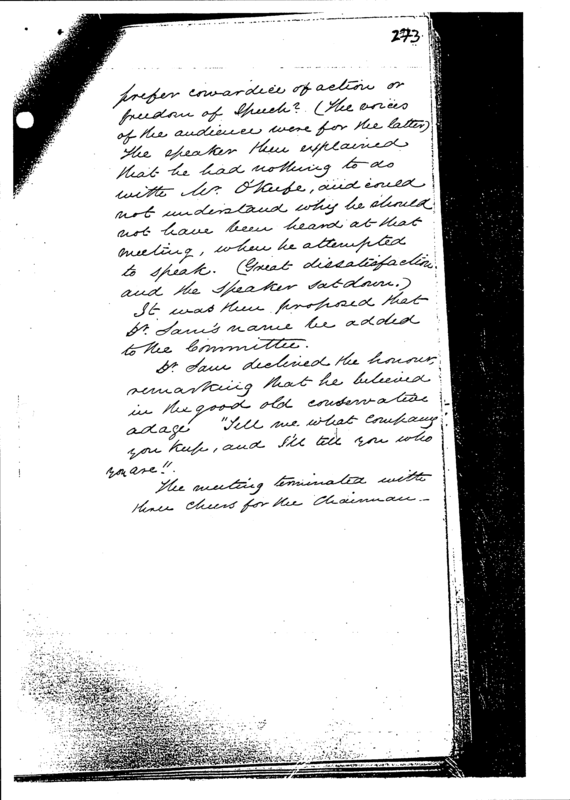 273.
prefer cowardice of action or
freedom of Speech? (The voices
of the audience were for the latter)
The speaker then explained
that he had nothing to do
with Mr. O'Keefe, and could
not understand why he should
not have been heard at that
meeting, when he attempted
to speak. (Great dissatisfaction.
and the speaker sat down.)
It was then proposed that
Dr. Sam's name be added
to the Committee.
Dr. Sam declined the honour,
remarking that he believed
in the good old conservative
adage "Tell me what company
you keep, and I'll tell you who
you are"!.
The meeting terminated with
three cheers for the Chairman —